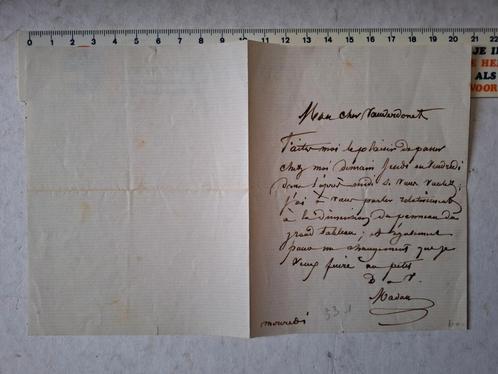 0 1 2 3 4 5 6 7 8 9 10 11 12 13 14 15 16 17 18 19 20 21 22
JE
HE
ALS
VOOR
Mon cher Vanderdonck
Faites moi le plaisir de passer
chez moi demain Jeudi ou Vendredi
dans l'après midi si vous voulez;
j'ai à vous parler relativement
à la dimension du panneau du
grand tableau; et également
pour un changement que je
veux faire au petit
Madou
mercredi
33